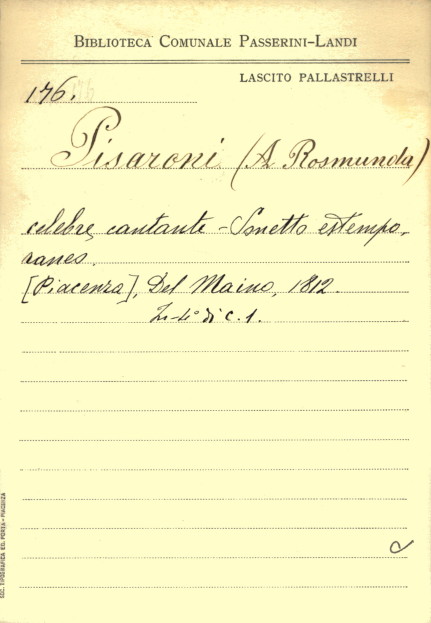 BIBLIOTECA COMUNALE PASSERINI-LANDI
LASCITO PALLASTRELLI
176.
Pisaroni (A Rosmunda)
celebre cantante - Sonetto estempo-
raneo.
[Piacenza], Del Maino, 1812.
In-4° di c. 1.
SOC. TIPOGRAFICA ED. PORTA - PIACENZA